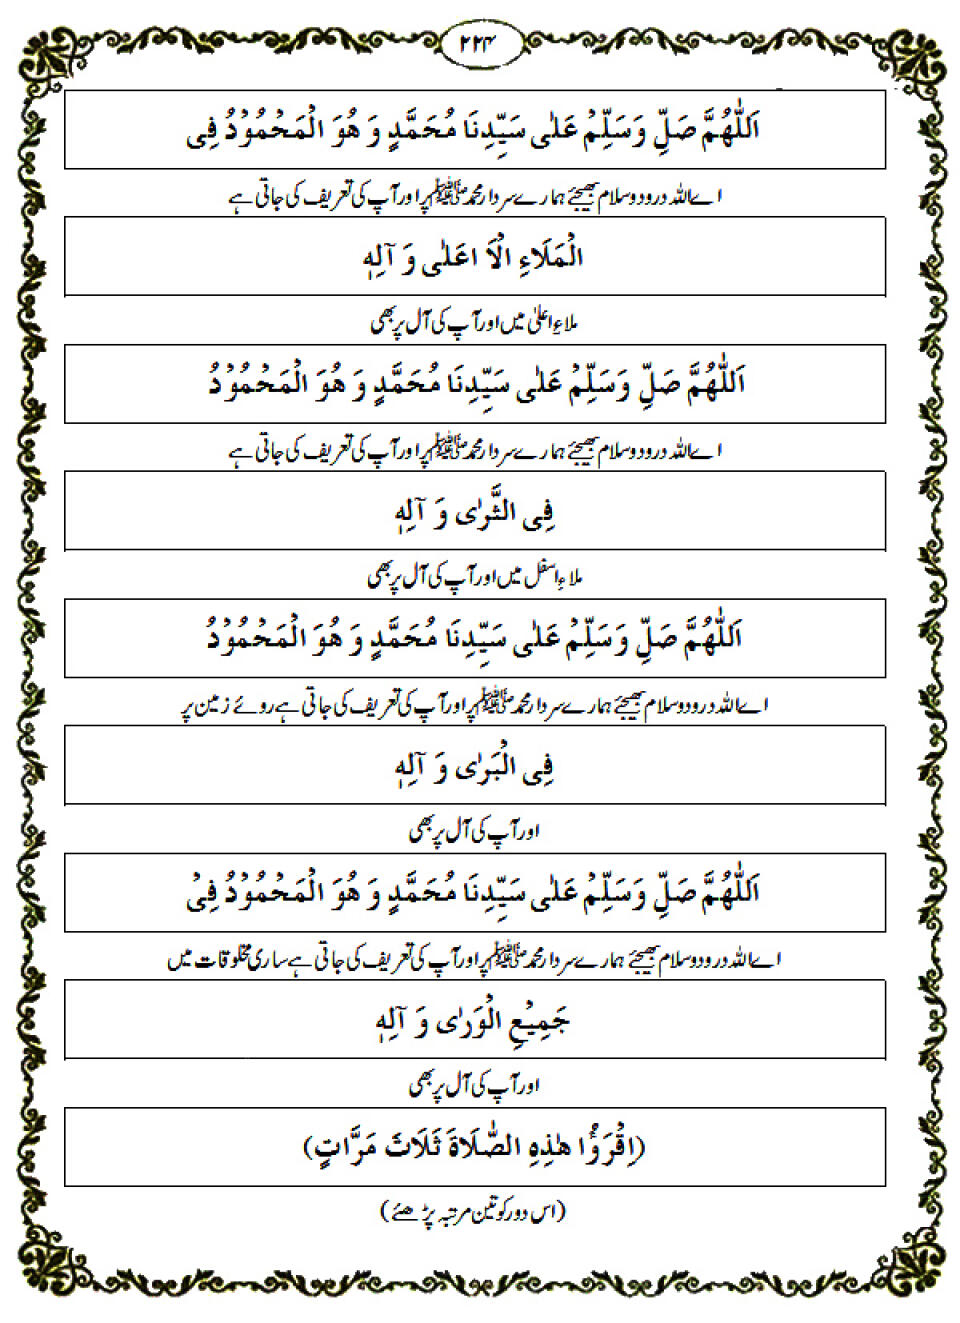 ۲۲۴
اَللّٰهُمَّ صَلِّ وَسَلِّمْ عَلٰى سَيِّدِنَا مُحَمَّدٍ وَ هُوَ الْمَحْمُوْدُ فِى
اے اللہ درود و سلام بھیجئے ہمارے سردار محمد ﷺ پر اور آپ کی تعریف کی جاتی ہے
الْمَلَاءِ الْاَ اعَلٰى وَ آلِهٖ
ملاءِ اعلیٰ میں اور آپ کی آل پر بھی
اَللّٰهُمَّ صَلِّ وَسَلِّمْ عَلٰى سَيِّدِنَا مُحَمَّدٍ وَ هُوَ الْمَحْمُوْدُ
اے اللہ درود و سلام بھیجئے ہمارے سردار محمد ﷺ پر اور آپ کی تعریف کی جاتی ہے
فِى الثَّرٰى وَ آلِهٖ
ملاءِ اسفل میں اور آپ کی آل پر بھی
اَللّٰهُمَّ صَلِّ وَسَلِّمْ عَلٰى سَيِّدِنَا مُحَمَّدٍ وَ هُوَ الْمَحْمُوْدُ
اے اللہ درود و سلام بھیجئے ہمارے سردار محمد ﷺ پر اور آپ کی تعریف کی جاتی ہے روئے زمین پر
فِى الْبَرٰى وَ آلِهٖ
اور آپ کی آل پر بھی
اَللّٰهُمَّ صَلِّ وَسَلِّمْ عَلٰى سَيِّدِنَا مُحَمَّدٍ وَ هُوَ الْمَحْمُوْدُ فِىْ
اے اللہ درود و سلام بھیجئے ہمارے سردار محمد ﷺ پر اور آپ کی تعریف کی جاتی ہے ساری مخلوقات میں
جَمِيْعِ الْوَرٰى وَ آلِهٖ
اور آپ کی آل پر بھی
(اِقْرَؤُا هٰذِهِ الصَّلَاةَ ثَلَاثَ مَرَّاتٍ)
(اس دور کو تین مرتبہ پڑھئے)